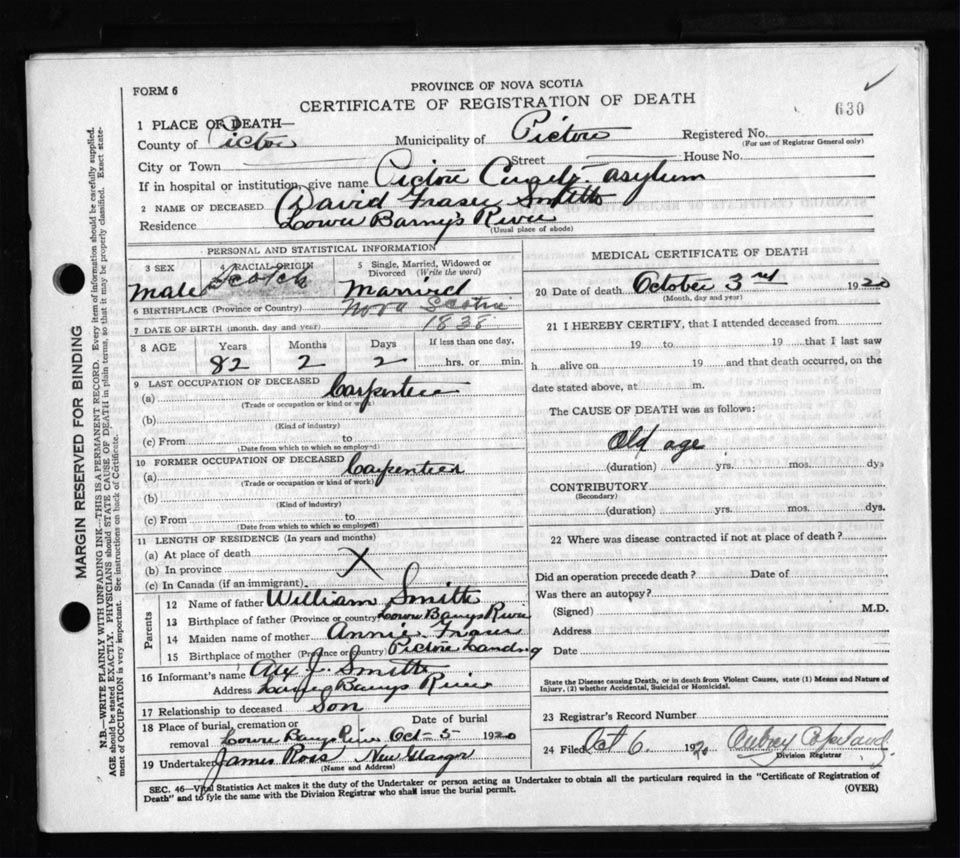 FORM 6
PROVINCE OF NOVA SCOTIA
CERTIFICATE OF REGISTRATION OF DEATH
630
1 PLACE OF DEATH—
County of Pictou Municipality of Pictou Registered No.
(For use of Registrar General only)
City or Town Street House No.
If in hospital or institution, give name Pictou County Asylum
2 NAME OF DECEASED David Fraser Smith
Residence Lower Barnys River
(Usual place of abode)
PERSONAL AND STATISTICAL INFORMATION
3 SEX Male
4 RACIAL ORIGIN Scotch
5 Single, Married, Widowed or Divorced (Write the word) Married
6 BIRTHPLACE (Province or Country) Nova Scotia
7 DATE OF BIRTH (month, day and year) 1838
8 AGE Years Months Days If less than one day,
82 2 2 hrs. or min.
9 LAST OCCUPATION OF DECEASED
(a) Carpenter
(Trade or occupation or kind of work)
(b)
(Kind of industry)
(c) From to
(Date from which to which so employed)
10 FORMER OCCUPATION OF DECEASED
(a) Carpenter
(Trade or occupation or kind of work)
(b)
(Kind of industry)
(c) From to
(Date from which to which so employed)
11 LENGTH OF RESIDENCE (In years and months)
(a) At place of death
(b) In province X
(c) In Canada (if an immigrant)
Parents
12 Name of father William Smith
13 Birthplace of father (Province or country) Lower Barnys River
14 Maiden name of mother Annie Fraser
15 Birthplace of mother (Province or country) Pictou Landing
16 Informant's name Alex J. Smith
Address Lower Barnys River
17 Relationship to deceased Son
18 Place of burial, cremation or removal Lower Barnys River Date of burial Oct-5 1920
19 Undertaker James Ross New Glasgow
(Name and Address)
MEDICAL CERTIFICATE OF DEATH
20 Date of death October 3rd 1920
(Month, day and year)
21 I HEREBY CERTIFY, that I attended deceased from
19 to 19 that I last saw
h alive on 19 and that death occurred, on the
date stated above, at m.
The CAUSE OF DEATH was as follows:
Old age
(duration) yrs. mos. dys
CONTRIBUTORY
(Secondary)
(duration) yrs. mos. dys.
22 Where was disease contracted if not at place of death?
Did an operation precede death? Date of
Was there an autopsy?
(Signed) M.D.
Address
Date
State the Disease causing Death, or in death from Violent Causes, state (1) Means and Nature of
Injury, (2) whether Accidental, Suicidal or Homicidal.
23 Registrar's Record Number
24 Filed Oct 6. 1920 Aubrey
Division Registrar
SEC. 46—Vital Statistics Act makes it the duty of the Undertaker or person acting as Undertaker to obtain all the particulars required in the "Certificate of Registration of
Death" and to fyle the same with the Division Registrar who shall issue the burial permit. (OVER)
MARGIN RESERVED FOR BINDING
N.B.—WRITE PLAINLY WITH UNFADING INK—THIS IS A PERMANENT RECORD. Every item of information should be carefully supplied.
AGE should be stated EXACTLY. PHYSICIANS should STATE CAUSE OF DEATH in plain terms, so that it may be properly classified. Exact state-
ment of OCCUPATION is very important. See instructions on back of Certificate.